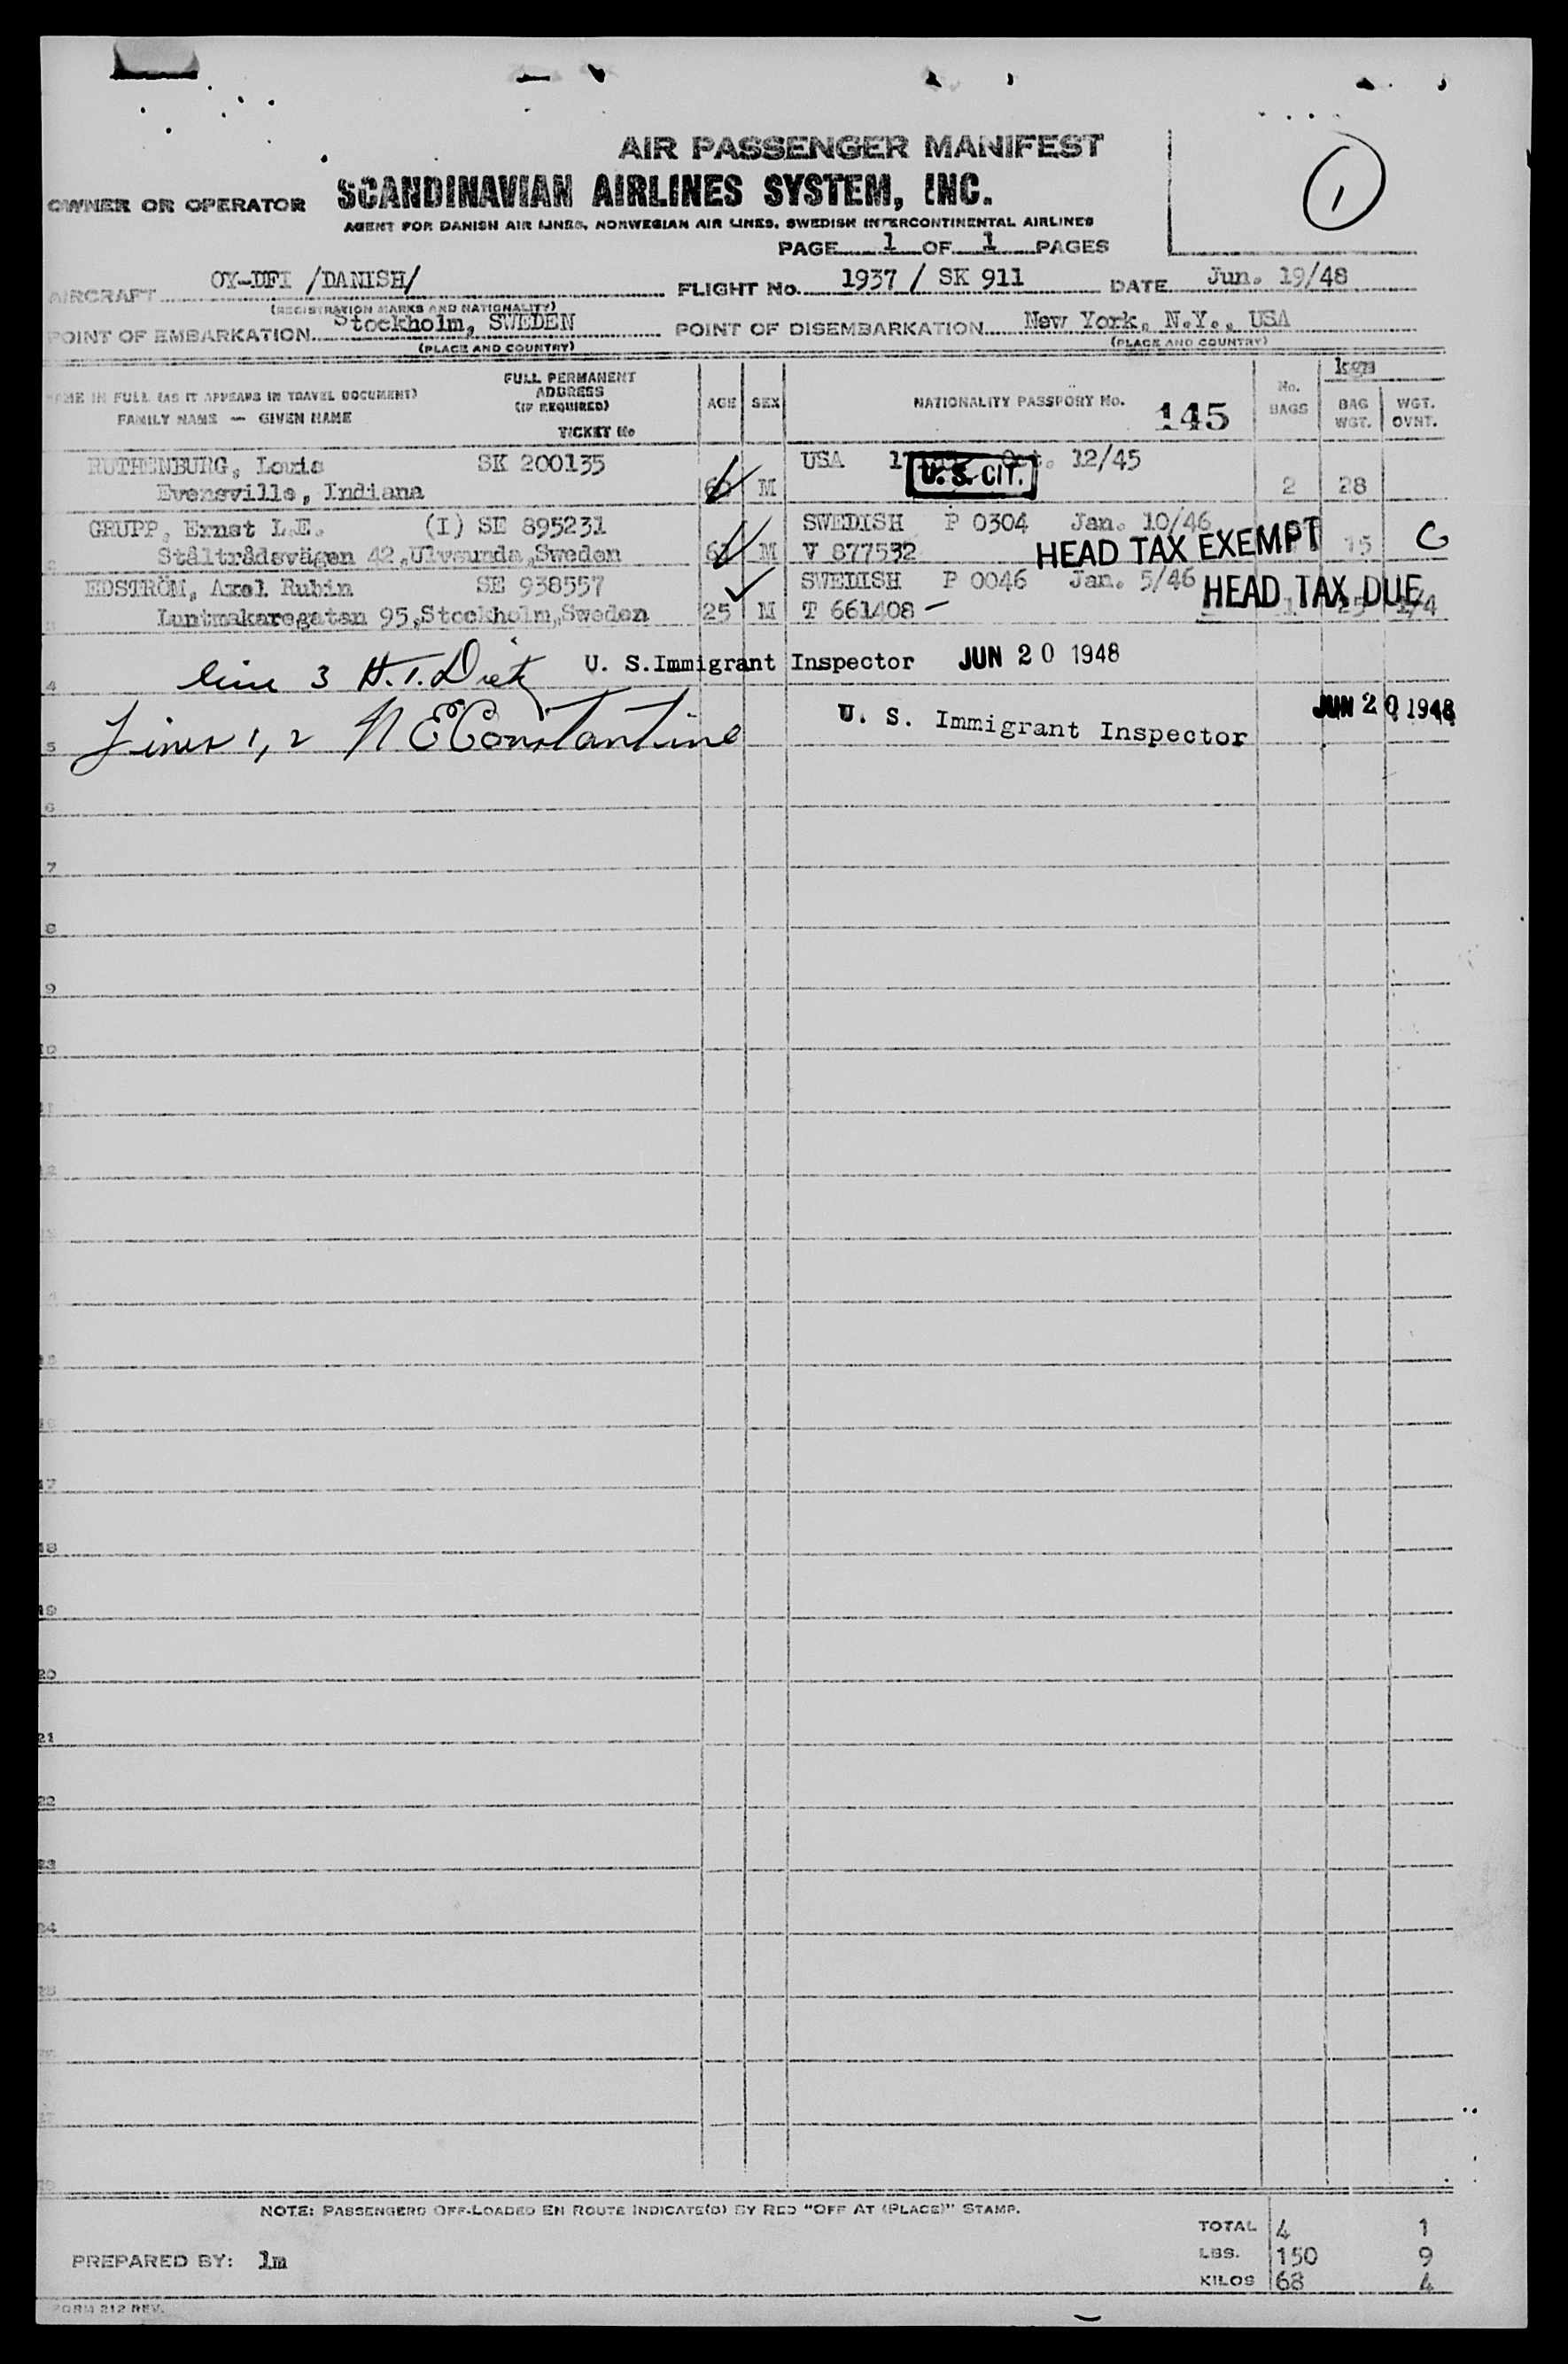 AIR PASSENGER MANIFEST
OWNER OR OPERATOR SCANDINAVIAN AIRLINES SYSTEM, INC.
AGENT FOR DANISH AIR LINES, NORWEGIAN AIR LINES, SWEDISH INTERCONTINENTAL AIRLINES
1
PAGE 1 OF 1 PAGES
AIRCRAFT OY-DFI /DANISH/ FLIGHT No. 1937 / SK 911 DATE Jun. 19/48
(REGISTRATION MARKS AND NATIONALITY)
POINT OF EMBARKATION Stockholm, SWEDEN POINT OF DISEMBARKATION New York, N.Y., USA
(PLACE AND COUNTRY) (PLACE AND COUNTRY)
NAME IN FULL (AS IT APPEARS IN TRAVEL DOCUMENT) FULL PERMANENT ADDRESS (IF REQUIRED) AGE SEX NATIONALITY PASSPORT No. 145 No. BAGS kgs BAG WGT. WGT. OVNT.
FAMILY NAME — GIVEN NAME TICKET No
RUTHENBURG, Louis SK 200135 USA Oct. 12/45
U. S. CIT.
Evensville, Indiana M 2 28
GRUPP, Ernst L.E. (I) SE 895231 SWEDISH P 0304 Jan. 10/46
2 Ståltrådsvägen 42, Ulvsunda, Sweden M V 877532 HEAD TAX EXEMPT 15
EDSTRÖM, Axel Rubin SE 938557 SWEDISH P 0046 Jan. 5/46 HEAD TAX DUE
3 Luntmakaregatan 95, Stockholm, Sweden 25 M T 661408 - 1 25
4 line 3 H.T. U. S. Immigrant Inspector JUN 20 1948
5 Lines 1, 2 N E Constantine U. S. Immigrant Inspector JUN 20 1948
6
7
8
9
10
11
12
13
14
15
16
17
18
19
20
21
22
23
24
25
NOTE: PASSENGERS OFF-LOADED EN ROUTE INDICATE(D) BY RED "OFF AT (PLACE)" STAMP.
TOTAL 4 1
LBS. 150 9
PREPARED BY: lm
KILOS 68 4
FORM 212 REV.